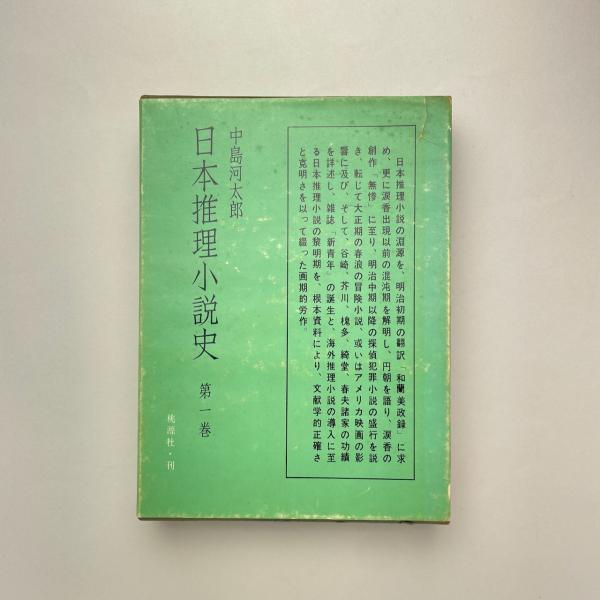 日本推理小説の淵源を、明治初期の翻訳「和蘭美政録」に求
め、更に涙香出現以前の混沌期を解明し、円朝を語り、涙香の
創作「無惨」に至り、明治中期以降の探偵犯罪小説の盛行を説
き、転じて大正期の春浪の冒険小説、或いはアメリカ映画の影
響に及び、そして、谷崎、芥川、槐多、綺堂、春夫諸家の功績
を詳述し、雑誌「新青年」の誕生と、海外推理小説の導入に至
る日本推理小説の黎明期を、根本資料により、文献学的正確さ
と克明さを以って綴った画期的労作。
中島河太郎
日本推理小説史 第一巻
桃源社・刊